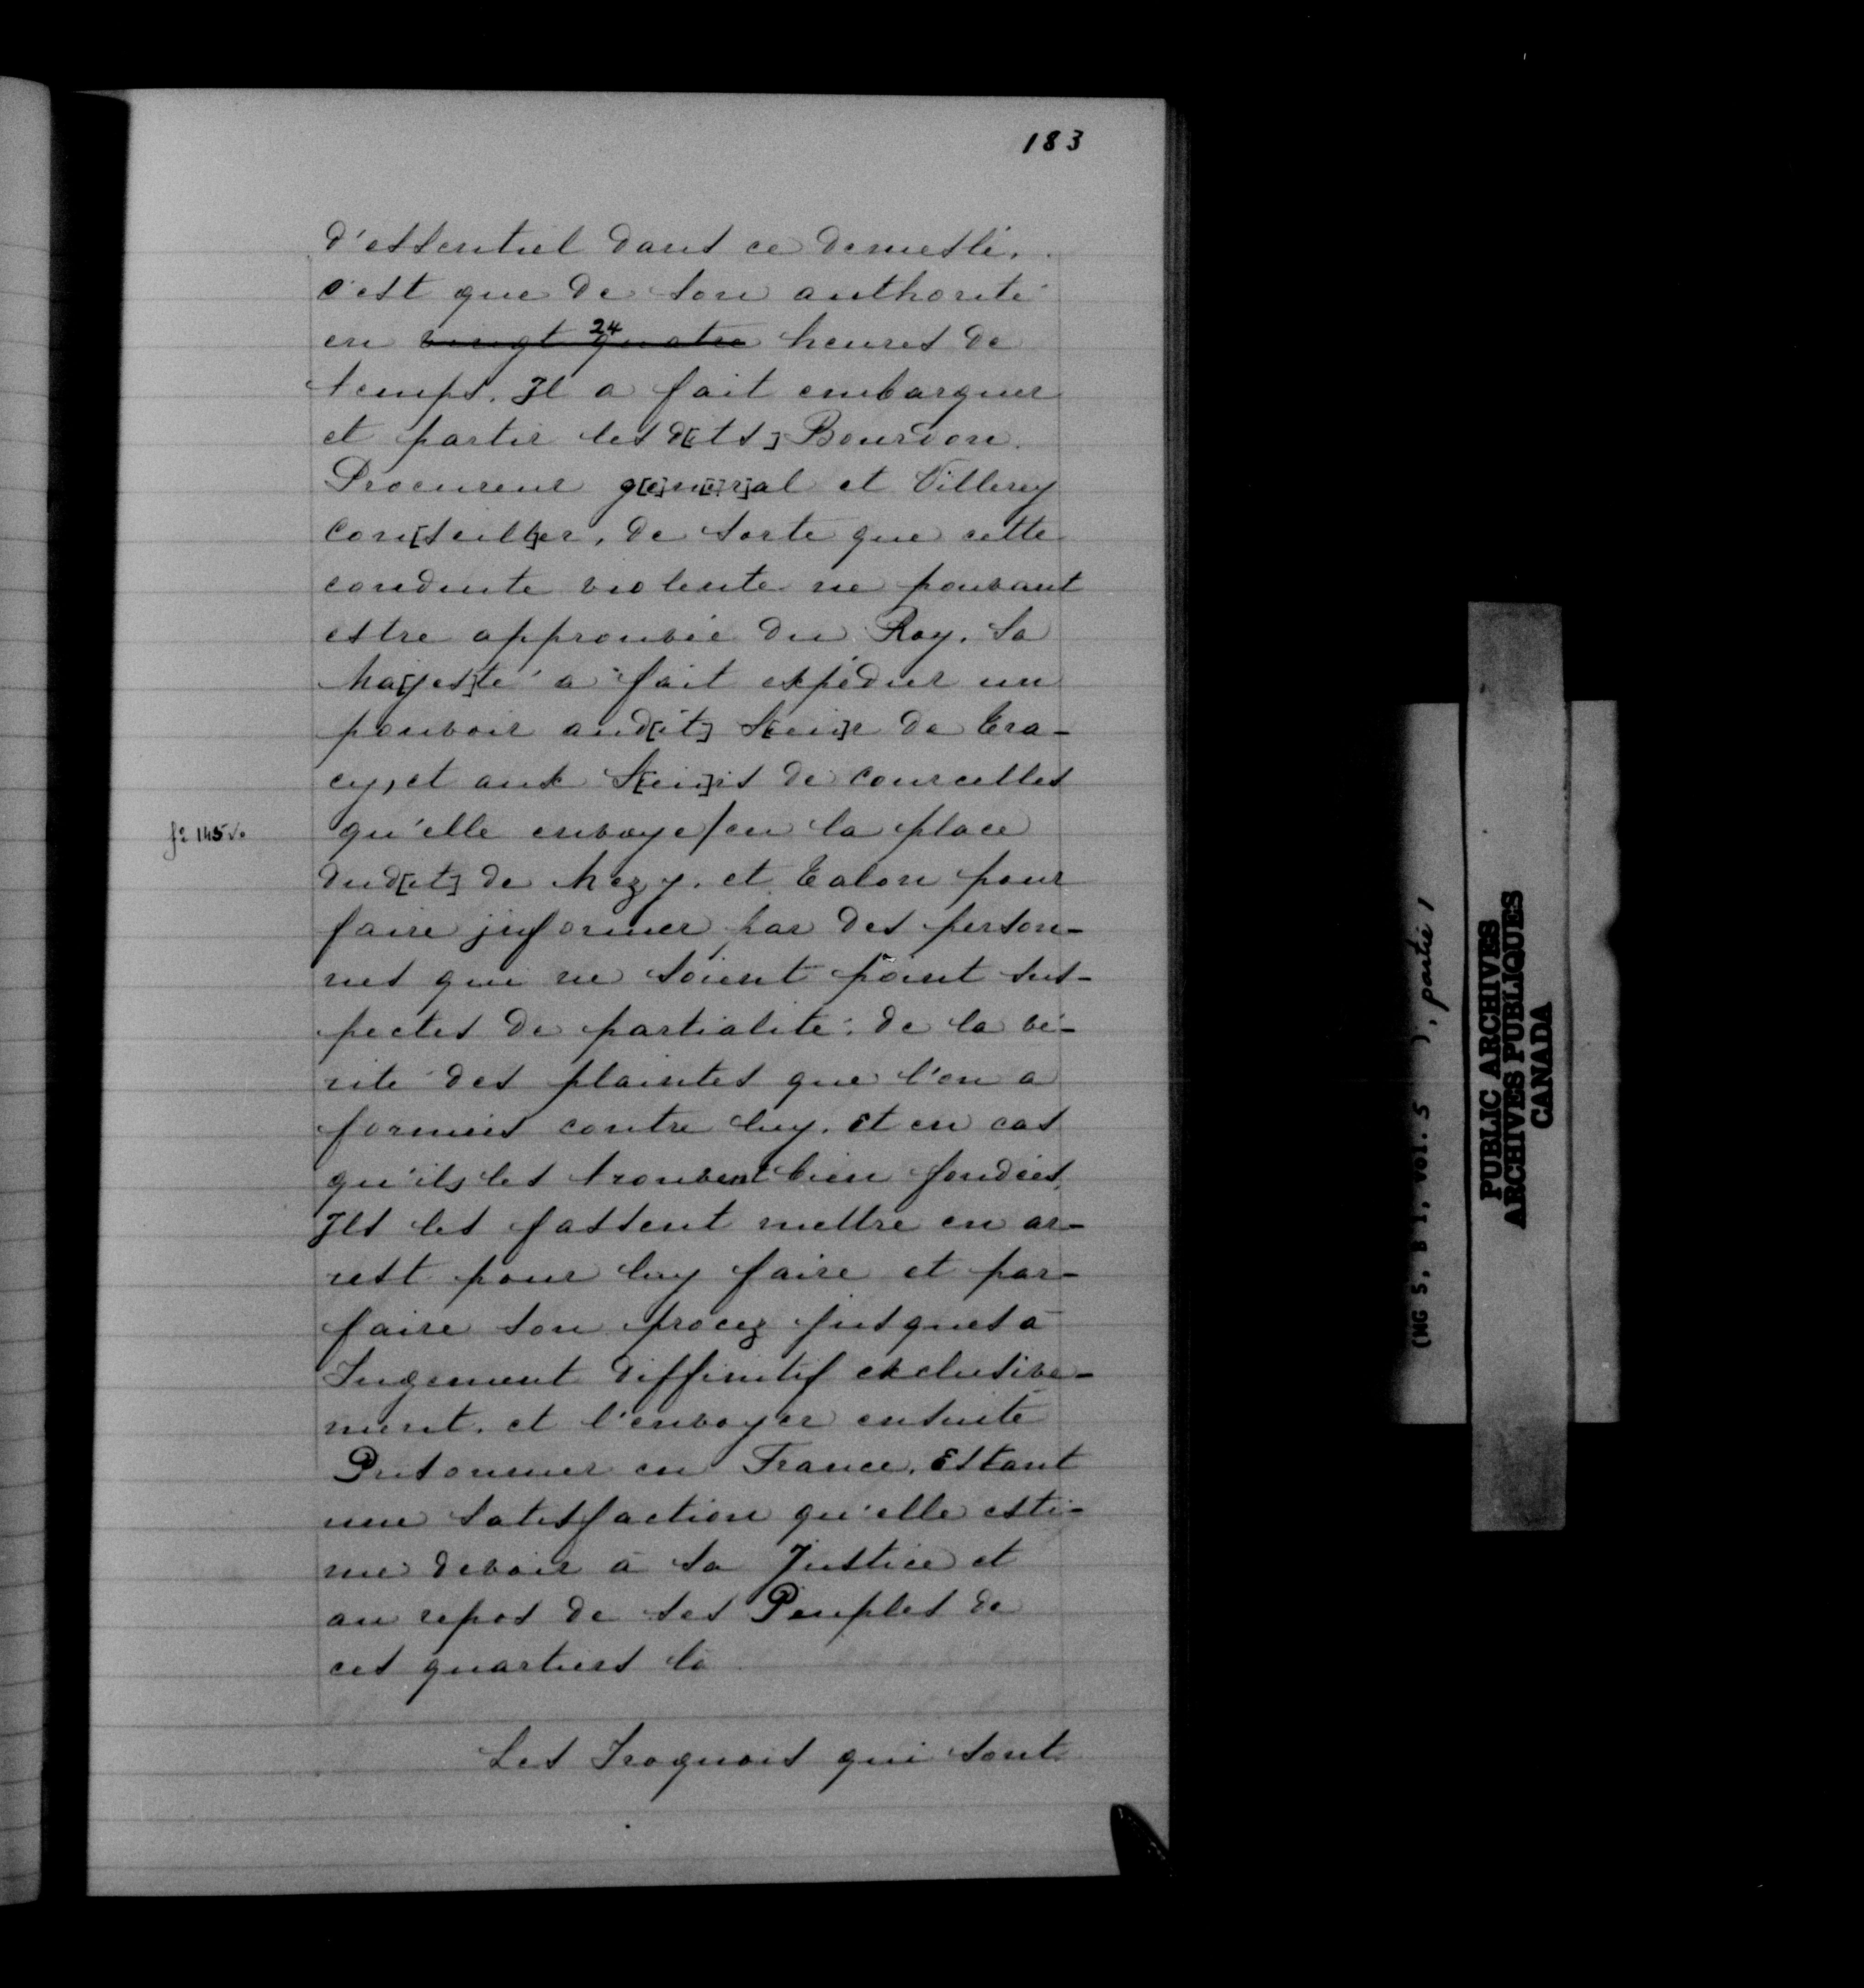 183
d'essentiel dans ce demeslé,
c'est que de son authorité
en vingt quatre 24 heures de
temps, Il a fait embarquer
et partir lesd[its] Bourdon
Procureur g[é]n[é][r]al et Villerey
Con[seill]er, de sorte que cette
conduite violente ne pouvant
estre approuvée du Roy, Sa
Ma[jes]té a fait expédier un
pouvoir aud[it] S[ieu]r de Tra-
cy, et aux S[ieu]rs de Courcelles
fo 145 vo
qu'elle envoye/en la place
dud[it] de Mezy, et Talon pour
faire jnformer par des person-
nes qui ne soient point sus-
pectes de partialité, de la vé-
rité des plaintes que l'on a
formées contre luy, Et en cas
qu'ils les trouvent bien fondées,
Ils les fassent mettre en ar-
rest pour luy faire et par-
faire son procez jusques à
Jugement diffinitif exclusive-
ment, et l'envoyer ensuite
Prisonnier en France, Estant
une satisfaction qu'elle esti-
me devoir à sa Justice et
au repos de ses Peuples de
ces quartiers là
Les Iroquois qui sont
(MG 5, B 1, vol. 5 ), partie 1
PUBLIC ARCHIVES
ARCHIVES PUBLIQUES
CANADA